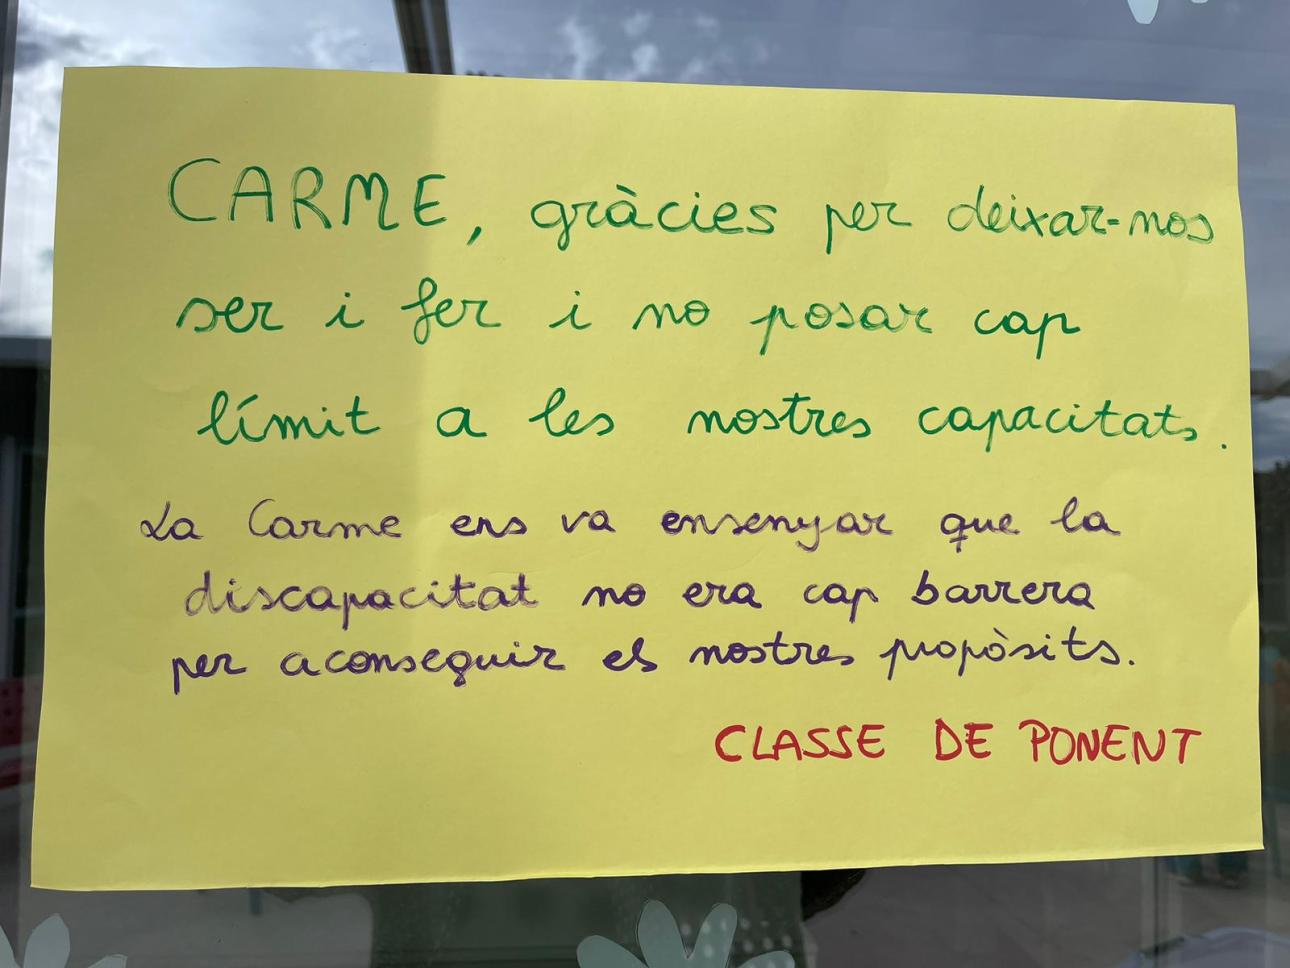 CARME, gràcies per deixar-nos
ser i fer i no posar cap
límit a les nostres capacitats.
La Carme ens va ensenyar que la
discapacitat no era cap barrera
per aconseguir els nostres propòsits.
CLASSE DE PONENT